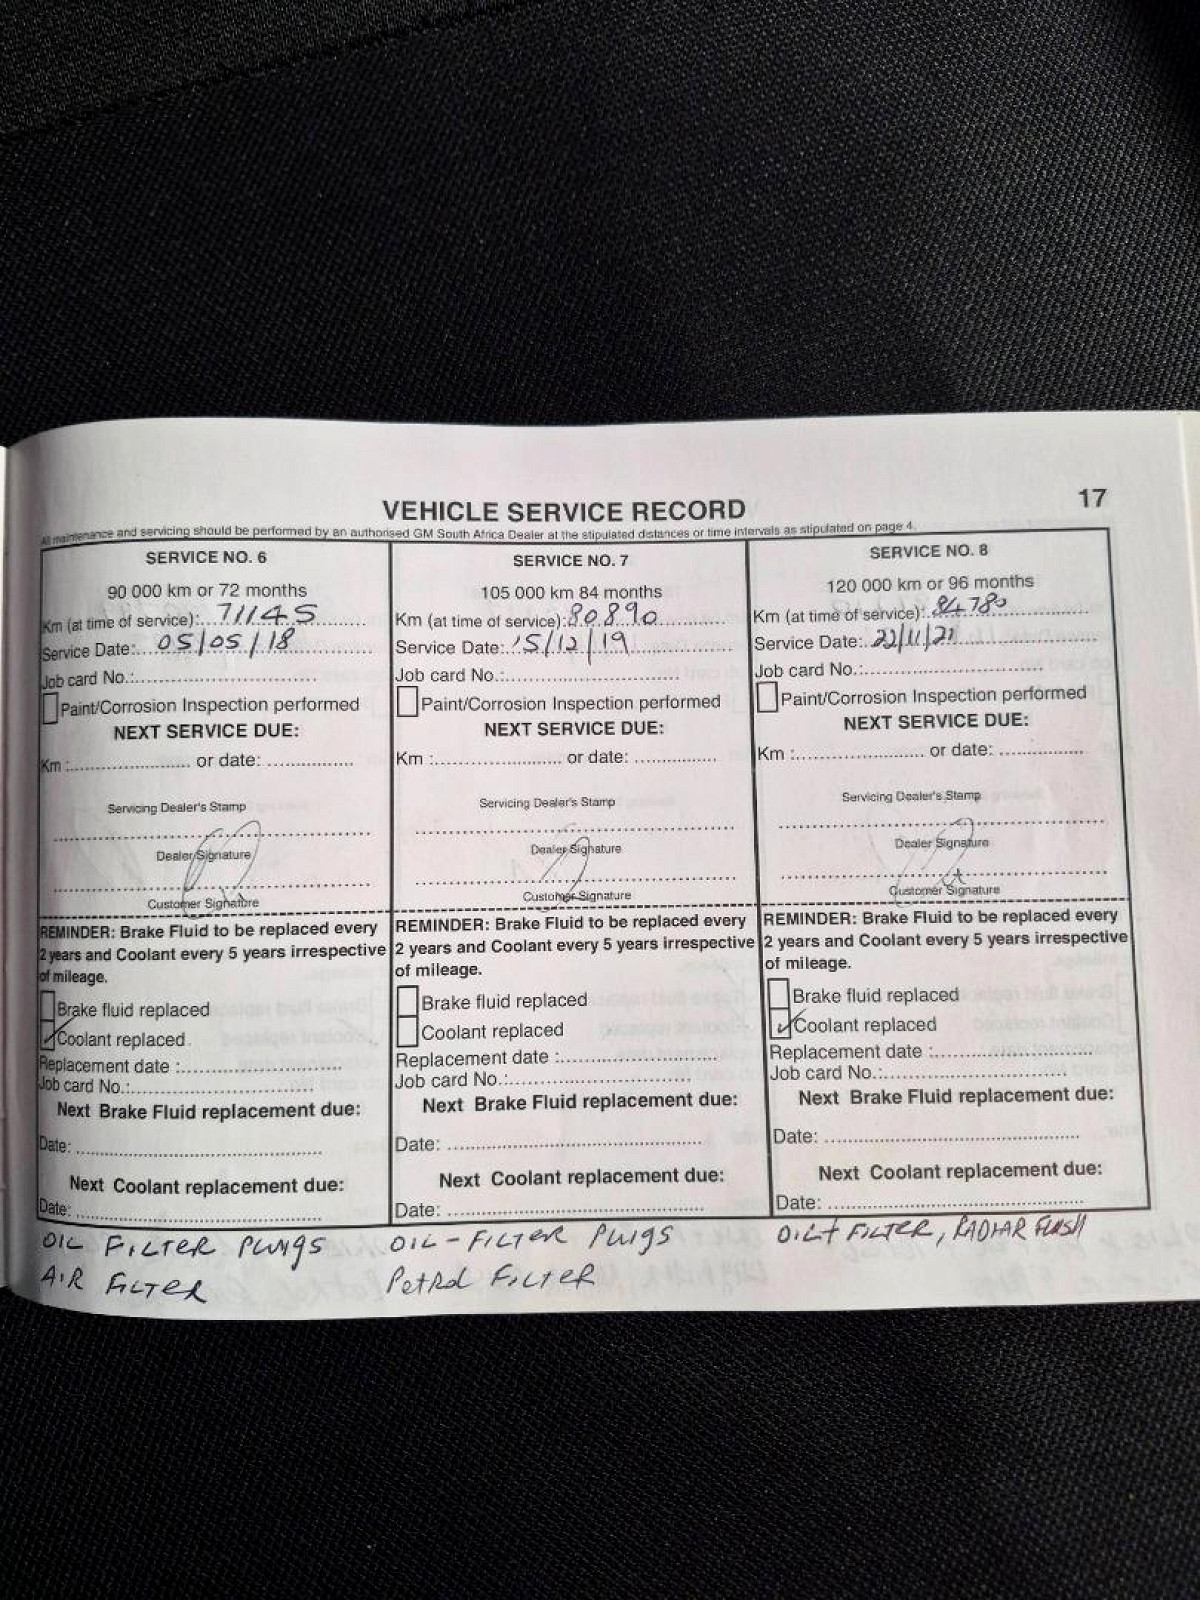 17
VEHICLE SERVICE RECORD
All maintenance and servicing should be performed by an authorised GM South Africa Dealer at the stipulated distances or time intervals as stipulated on page 4.
SERVICE NO. 6
90 000 km or 72 months
Km (at time of service): 71145
Service Date: 05/05/18
Job card No.:
Paint/Corrosion Inspection performed
NEXT SERVICE DUE:
Km : or date:
Servicing Dealer's Stamp
Dealer Signature
Customer Signature
REMINDER: Brake Fluid to be replaced every
2 years and Coolant every 5 years irrespective
of mileage.
Brake fluid replaced
Coolant replaced
Replacement date :
Job card No.:
Next Brake Fluid replacement due:
Date:
Next Coolant replacement due:
Date:
OIL FILTER PLUGS
AIR FILTER
SERVICE NO. 7
105 000 km 84 months
Km (at time of service): 80890
Service Date: 15/12/19
Job card No.:
Paint/Corrosion Inspection performed
NEXT SERVICE DUE:
Km : or date:
Servicing Dealer's Stamp
Dealer Signature
Customer Signature
REMINDER: Brake Fluid to be replaced every
2 years and Coolant every 5 years irrespective
of mileage.
Brake fluid replaced
Coolant replaced
Replacement date :
Job card No.:
Next Brake Fluid replacement due:
Date:
Next Coolant replacement due:
Date:
OIL - FILTER PLUGS
Petrol FILTER
SERVICE NO. 8
120 000 km or 96 months
Km (at time of service): 84780
Service Date: 22/11/21
Job card No.:
Paint/Corrosion Inspection performed
NEXT SERVICE DUE:
Km : or date:
Servicing Dealer's Stamp
Dealer Signature
Customer Signature
REMINDER: Brake Fluid to be replaced every
2 years and Coolant every 5 years irrespective
of mileage.
Brake fluid replaced
Coolant replaced
Replacement date :
Job card No.:
Next Brake Fluid replacement due:
Date:
Next Coolant replacement due:
Date:
OIL + FILTER, FLUSH